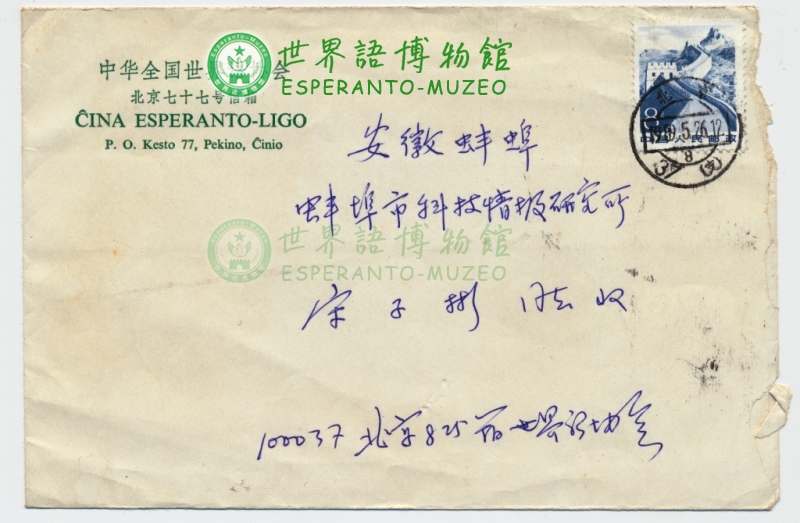 世界語博物館
ESPERANTO-MUZEO
中华全国世 会
北京七十七号信箱
ĈINA ESPERANTO-LIGO
P. O. Kesto 77, Pekino, Ĉinio
8
中国人民邮政
北
5.26.12
8
(支)
安徽蚌埠
蚌埠市科技情报研究所
世界語博物館
ESPERANTO-MUZEO
宋子彬 同志 收
100037 北京825箱世界语协会